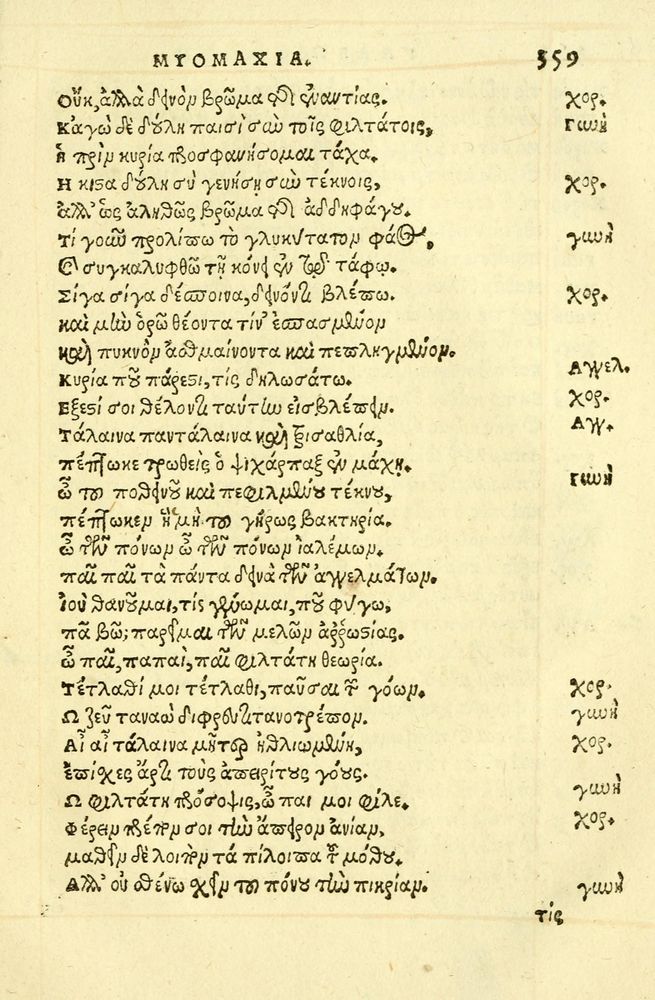 ΜΥΟΜΑΧΙΑ. 559
Οὔκ, ἀλλὰ δεινὸν βρῶμα τῆς ἐναντίας. χορ.
Κἀγὼ δὲ δούλη παισὶ σὺν τοῖς φιλτάτοις, γυνὴ
ἡ πρὶν κυρία προσφανήσομαι τάχα.
Η κιςα δούλη σὺ γενήσῃ σὺν τέκνοις, χορ.
ἀλλ' ὡς ἀληθῶς βρῶμα τῆς ἀδδηφάγου.
Τί γοῦν προλίπω τὸ γλυκύτατον φάος, γυνὴ
συγκαλυφθῶ τῇ κόνει ἐν τῷ τάφῳ.
Σίγα σίγα δέσποινα, δεινόν τι βλέπω. χορ.
καὶ μὴν ὁρῶ θέοντα τίν' ἐσπασμένον
καὶ πυκνὸν ἀσθμαίνοντα καὶ πεπληγμένον.
Κυρία ποῦ πάρεστι, τίς δηλωσάτω. Αγγελ.
Εξεστί σοι θέλοντι ταύτην εἰσβλέπειν. χορ.
Τάλαινα παντάλαινα καὶ τρισαθλία, Αγ.
πέπτωκε τρωθεὶς ὁ ψιχάρπαξ ἐν μάχῃ.
ὦ τοῦ ποθεινοῦ καὶ πεφιλμένου τέκνου, γυνὴ
πέπτωκεν ἡ μὴ τοῦ γήρως βακτηρία.
ὦ τῶν πόνων ὦ τῶν πόνων ἰαλέμων.
παῖ παῖ τὰ πάντα δεινὰ τῶν ἀγγελμάτων.
ἰοὺ θανοῦμαι, τίς γένωμαι, ποῦ φύγω,
πᾶ βῶ; παρεῖμαι τῶν μελῶν ἀῤῥωστίας.
ὦ παῖ, παπαὶ, παῖ φιλτάτη θεωρία.
Τέτλαθί μοι τέτλαθι, παῦσαι τῶν γόων. χορ.
Ω ζεῦ ταναῶ διφρευτὰ τανοτρέπον. γυνὴ
Αἲ αἲ τάλαινα μῆτερ ἠθλιωμένη, χορ.
ἐπίσχες ἄρτι τοὺς ἀπειρίτους γόους.
Ω φιλτάτη πρόσοψις, ὦ παι μοι φίλε. γυνὴ
Φέρειν πρέπον σοι τὴν ἄπειρον ἀνίαν, χορ.
μαθεῖν δὲ λοιπὸν τά πίλοιπα τοῦ μόθου.
Αλλ' οὐ σθένω χεῖν τοῦ πόνου τὴν πικρίαν. γυνὴ
τίς